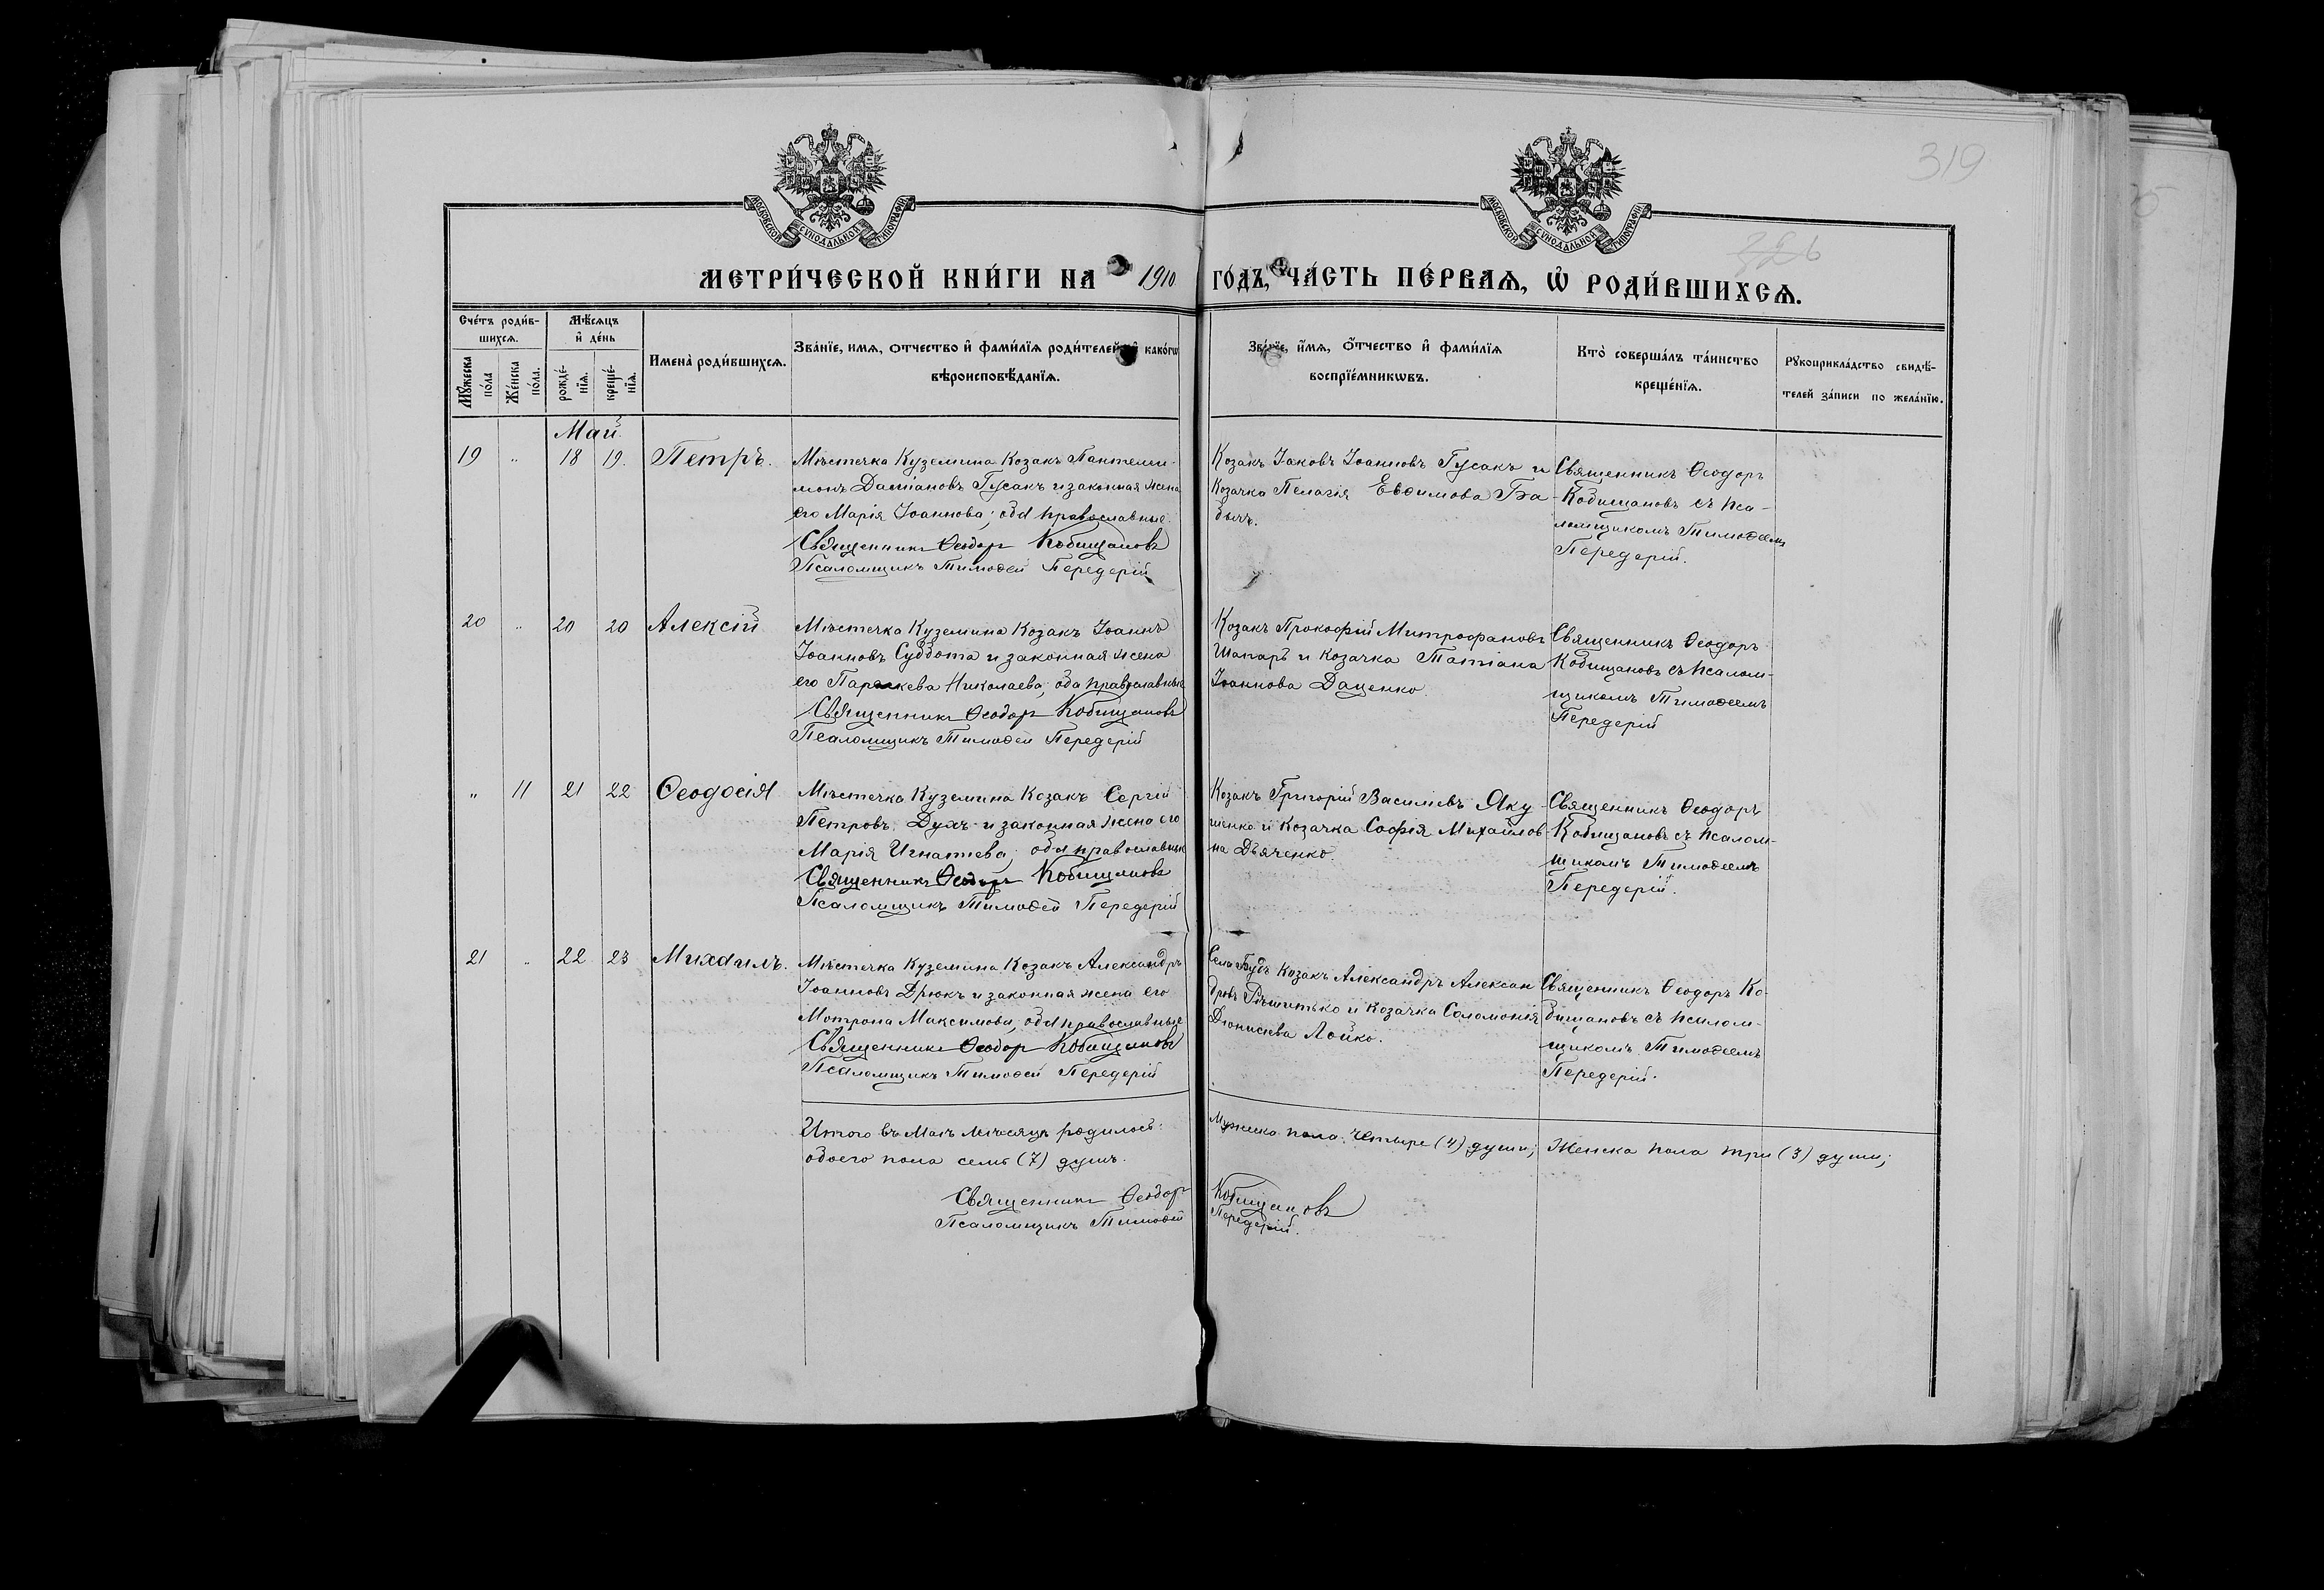 319
326
МОСКОВСКОЙ СѴНОДАЛЬНОЙ ТИПОГРАФІИ
МОСКОВСКОЙ СѴНОДАЛЬНОЙ ТИПОГРАФІИ
МЕТРИ́ЧЕСКОЙ КНИ́ГИ НА 1910 ГО́ДЪ, ЧА́СТЬ ПЕ́РВАѦ, Ѿ РОДИ́ВШИХСѦ.
Сче́тъ роди́в-
шихсѧ.
Мꙋ́жеска по́ла
Же́нска по́ла.
Мѣ́сѧцъ и҆ де́нь
рожде́-нїѧ.
креще́-нїѧ.
Имена̀ роди́вшихсѧ.
Зва́нїе, имѧ, ѻ҆́тчество и҆ фами́лїѧ роди́телей, и҆ како́гѡ
вѣроисповѣ́данїѧ.
Зва́нїе, и҆́мѧ, ѻ҆́тчество и҆ фами́лїѧ
воспрїе́мникѡвъ.
Кто̀ соверша́лъ та́инство
креще́нїѧ.
Рꙋкоприкла́дство свидѣ́-
телей за́писи по жела́нїю.
Май.
19 " 18 19. Петръ.
Мѣстечка Куземина Козакъ Пантелеи-
монъ Даміановъ Гусакъ и законная жена
его Марія Іоаннова; оба православные.
Священникъ Ѳеодоръ Кобищановъ
Псаломщикъ Тимоѳей Передерій
Козакъ Іаковъ Іоанновъ Гусакъ и
Козачка Пелагія Евѳимова Ба-
бычъ.
Священникъ Ѳеодоръ
Кобищановъ съ Пса-
ломщикомъ Тимоѳеемъ
Передерій.
20 " 20 20 Алексій
Мѣстечка Куземина Козакъ Іоаннъ
Іоанновъ Суббота и законная жена
его Параскева Николаева; оба православные
Священникъ Ѳеодоръ Кобищановъ
Псаломщикъ Тимоѳей Передерій
Козакъ Прокофій Митрофановъ
Шапаръ и Козачка Татіана
Іоаннова Даценко.
Священникъ Ѳеодоръ
Кобищановъ съ Псалом-
щикомъ Тимоѳеемъ
Передерій
" 11 21 22 Ѳеодосія
Мѣстечка Куземина Козакъ Сергій
Петровъ Духъ и законная жена его
Марія Игнатіева; оба православные
Священникъ Ѳеодоръ Кобищановъ
Псаломщикъ Тимоѳей Передерій
Козакъ Григорій Василіевъ Яку-
шенко и Козачка Софія Михайлов-
на Дьяченко.
Священникъ Ѳеодоръ
Кобищановъ съ Псалом-
щикомъ Тимоѳеемъ
Передерій.
21 " 22 23 Михаилъ.
Мѣстечка Куземина Козакъ Александръ
Іоанновъ Дрюкъ и законная жена его
Мотрона Максимова; оба православные
Священникъ Ѳеодоръ Кобищановъ
Псаломщикъ Тимоѳей Передерій
Села Будъ Козакъ Александръ Алексан-
дровъ Рѣшитько и Козачка Соломонія
Діонисіева Лойко.
Священникъ Ѳеодоръ Ко-
бищановъ съ Псалом-
щикомъ Тимоѳеемъ
Передерій.
Итого въ Маѣ мѣсяцѣ родилось:
обоего пола семь (7) душъ.
Мужеска пола четыре (4) души; Женска пола три (3) души;
Священникъ Ѳеодоръ Кобищановъ
Псаломщикъ Тимоѳей Передерій.